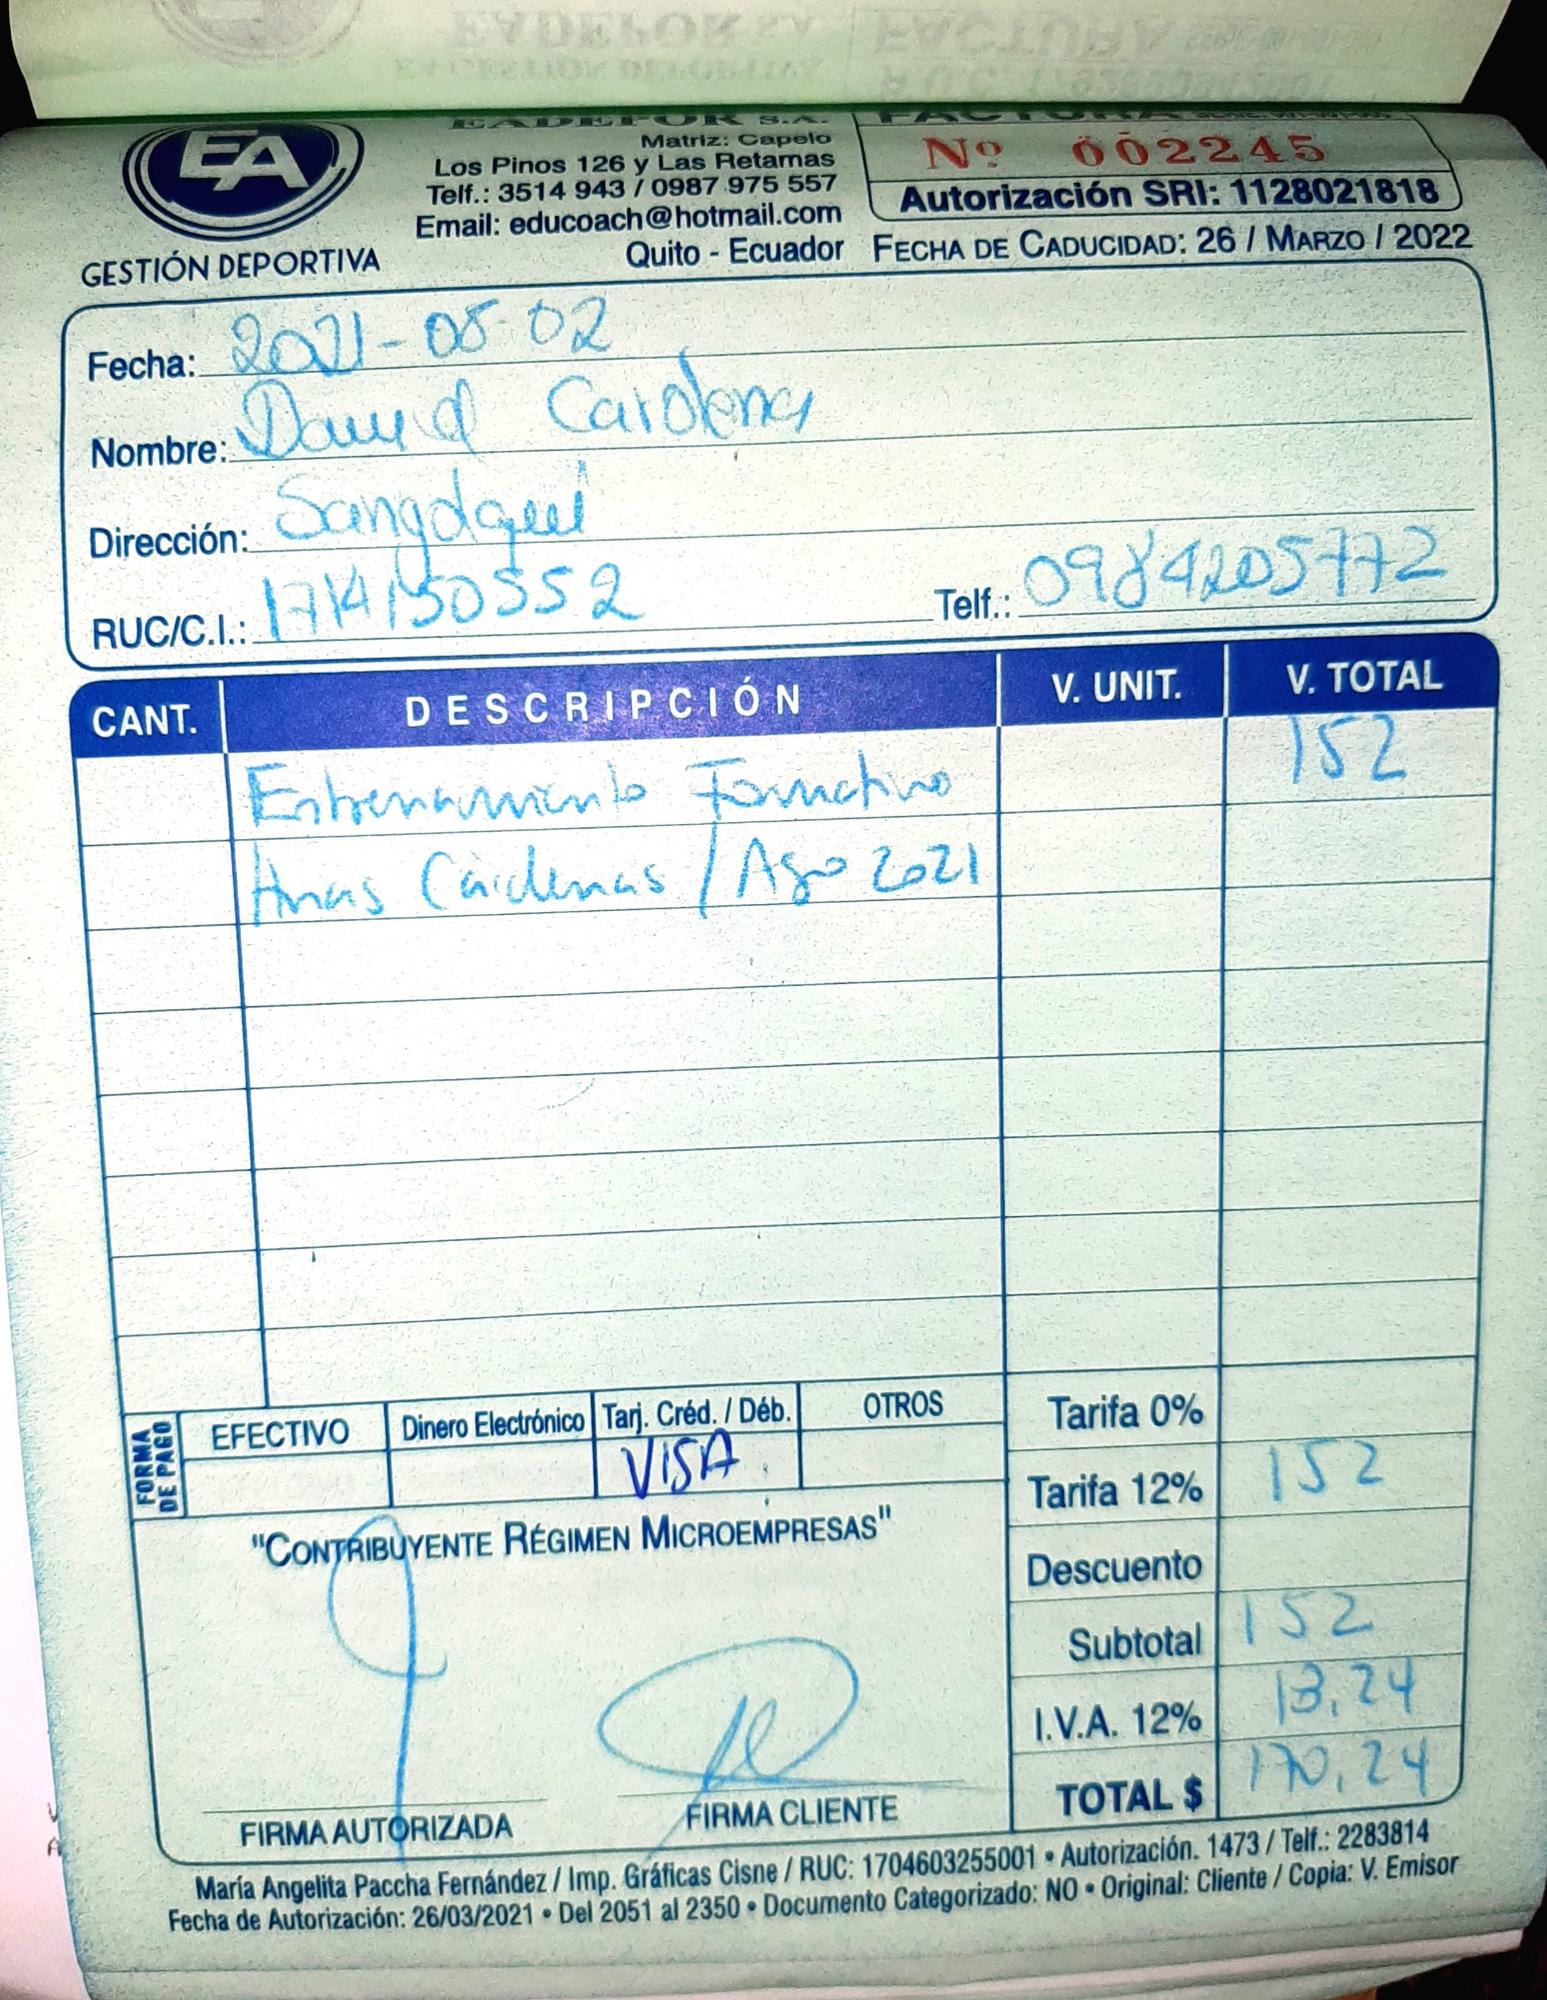 EADEFOR S.A.
FACTURA
EA
GESTIÓN DEPORTIVA
Matriz: Capelo
Los Pinos 126 y Las Retamas
Telf.: 3514 943 / 0987 975 557
Email: educoach@hotmail.com
Quito - Ecuador
Nº 002245
Autorización SRI: 1128021818
FECHA DE CADUCIDAD: 26 / MARZO / 2022
Fecha: 2021-08-02
Nombre: David Cardenas
Dirección: Sangolqui
RUC/C.I.: 1714150552 Telf.: 0984205772
CANT. DESCRIPCIÓN V. UNIT. V. TOTAL
Entrenamiento Formativo 152
Cárdenas / Ago 2021
FORMA DE PAGO
EFECTIVO Dinero Electrónico Tarj. Créd. / Déb. OTROS
VISA
Tarifa 0%
Tarifa 12% 152
Descuento
Subtotal 152
I.V.A. 12% 18,24
TOTAL $ 170,24
"CONTRIBUYENTE RÉGIMEN MICROEMPRESAS"
FIRMA AUTORIZADA FIRMA CLIENTE
María Angelita Paccha Fernández / Imp. Gráficas Cisne / RUC: 1704603255001 • Autorización. 1473 / Telf.: 2283814
Fecha de Autorización: 26/03/2021 • Del 2051 al 2350 • Documento Categorizado: NO • Original: Cliente / Copia: V. Emisor